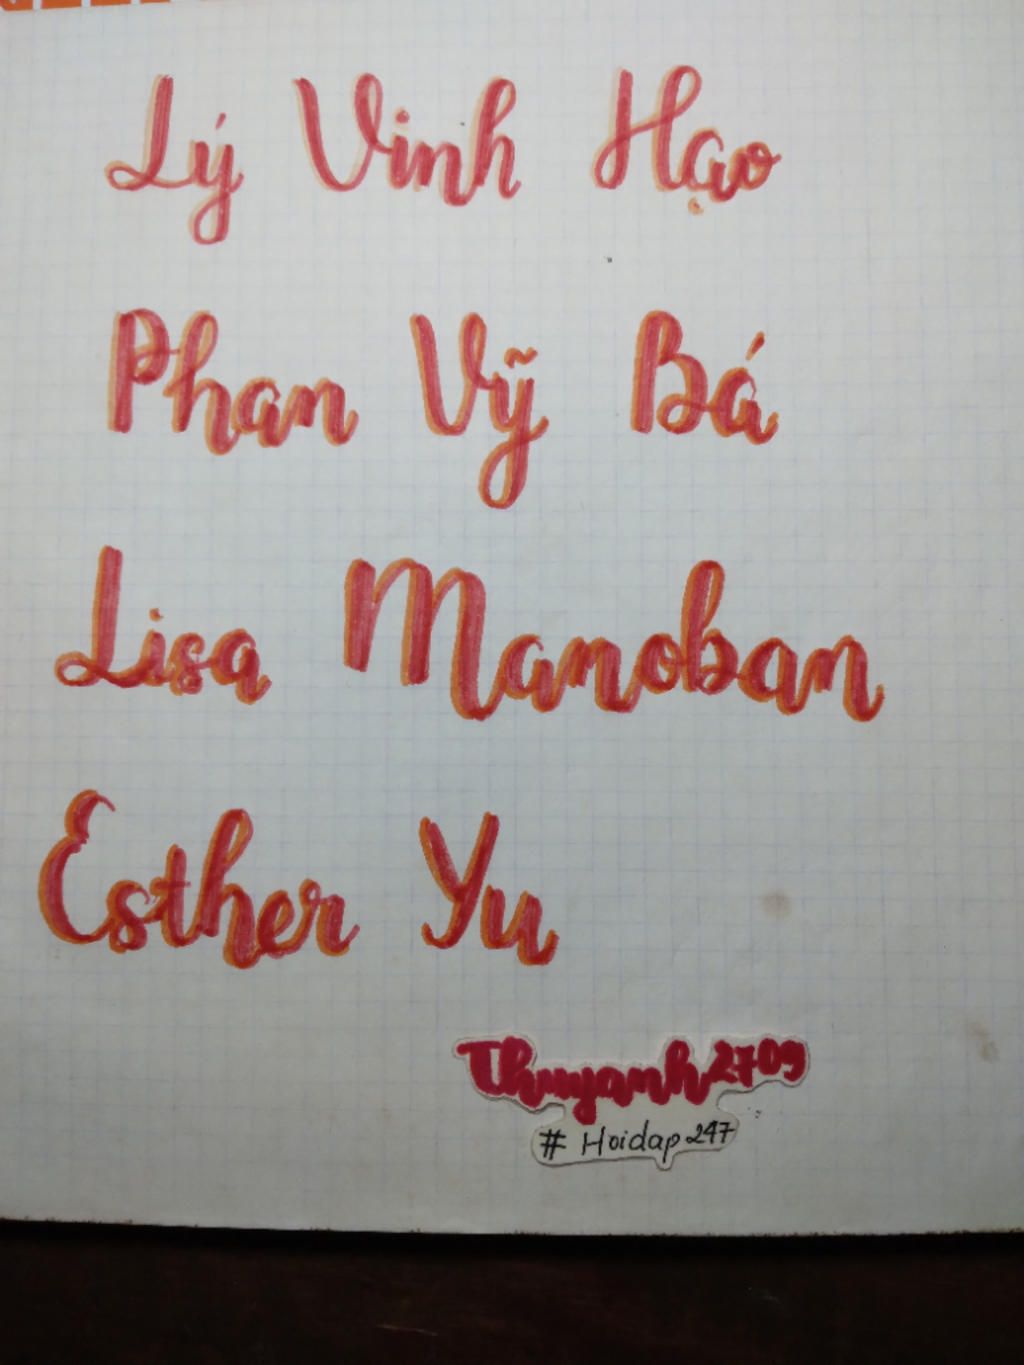 Lý Vinh Hạo
Phan Vỹ Bá
Lisa Manoban
Esther Yu
Thuyanh2709
# Hoidap247